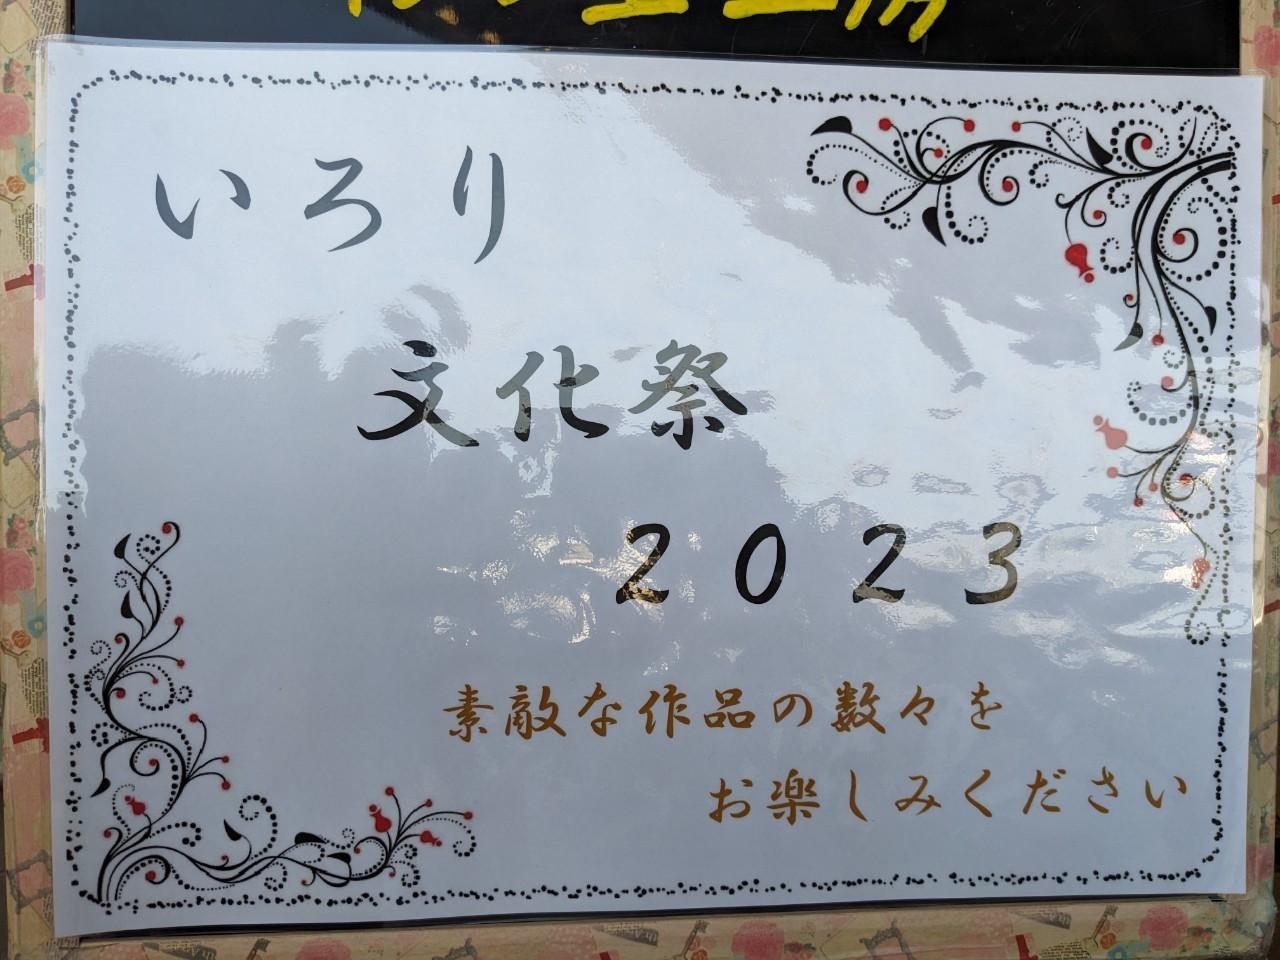 いろり
文化祭
2023
素敵な作品の数々を
お楽しみください